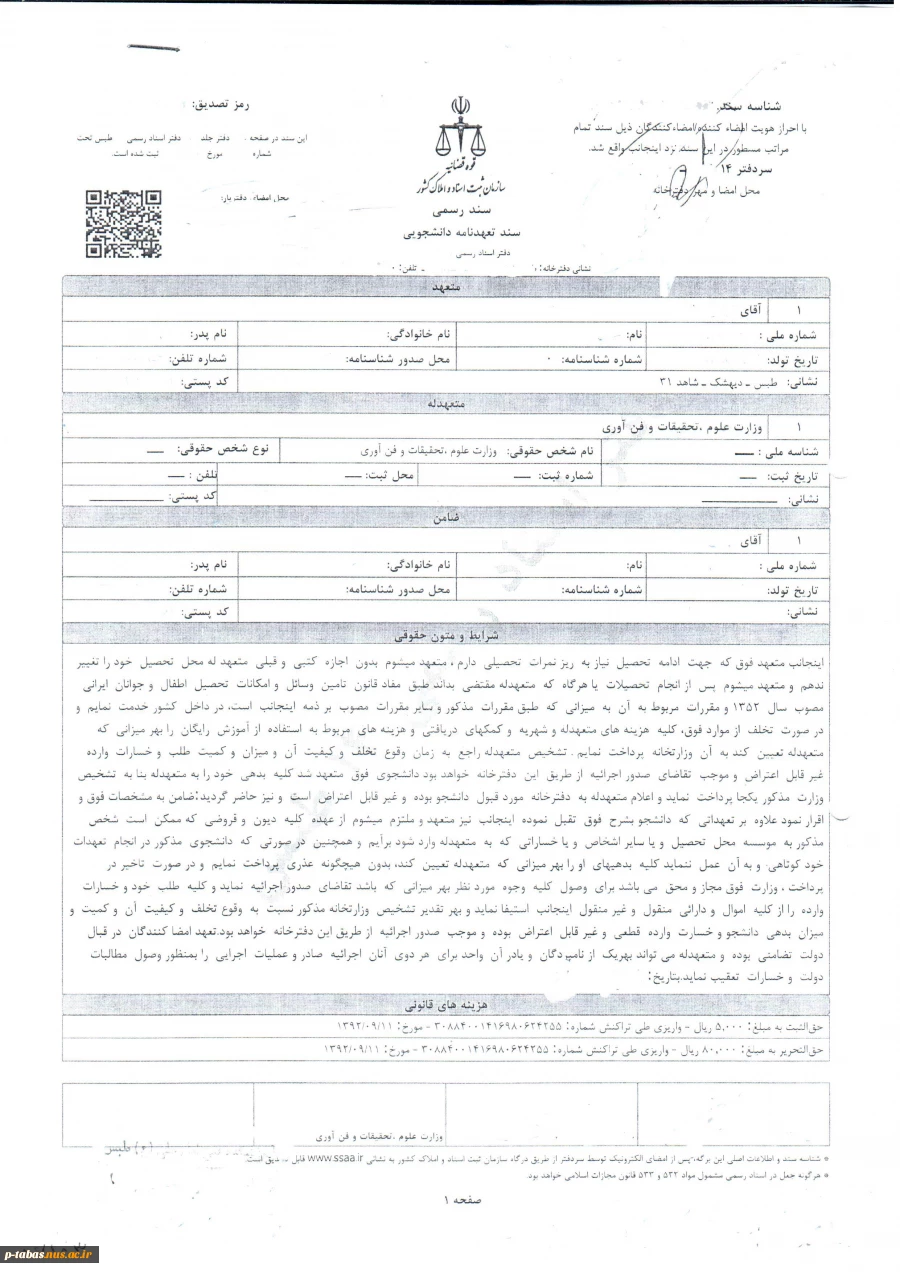 شناسه سند:
با احراز هویت امضاء کننده/امضاء کنندگان ذیل سند تمام
مراتب مسطور در این سند، نزد اینجانب واقع شد.
سردفتر ۱۴
محل امضا و مهر دفترخانه
قوه قضائیه
سازمان ثبت اسناد و املاک کشور
سند رسمی
سند تعهدنامه دانشجویی
دفتر اسناد رسمی
نشانی دفترخانه: ـ تلفن:
رمز تصدیق:
این سند در صفحه دفتر جلد دفتر اسناد رسمی طبس تحت
شماره مورخ ثبت شده است.
محل امضاء دفتریار:
متعهد
۱ آقای
شماره ملی : نام: نام خانوادگی: نام پدر:
تاریخ تولد: شماره شناسنامه: محل صدور شناسنامه: شماره تلفن:
نشانی: طبس ـ دیهشک ـ شاهد ۳۱ کد پستی:
متعهدله
۱ وزارت علوم ،تحقیقات و فن آوری
شناسه ملی : ـــ نام شخص حقوقی: وزارت علوم ،تحقیقات و فن آوری نوع شخص حقوقی: ـــ
تاریخ ثبت: ـــ شماره ثبت: ـــ محل ثبت: ـــ تلفن : ـــ
نشانی: ــــــــــــ کد پستی: ــــــــــــ
ضامن
۱ آقای
شماره ملی : نام: نام خانوادگی: نام پدر:
تاریخ تولد: شماره شناسنامه: محل صدور شناسنامه: شماره تلفن:
نشانی: کد پستی:
شرایط و متون حقوقی
اینجانب متعهد فوق که جهت ادامه تحصیل نیاز به ریز نمرات تحصیلی دارم ، متعهد میشوم بدون اجازه کتبی و قبلی متعهد له محل تحصیل خود را تغییر
ندهم و متعهد میشوم پس از انجام تحصیلات یا هرگاه که متعهدله مقتضی بداند طبق مفاد قانون تامین وسائل و امکانات تحصیل اطفال و جوانان ایرانی
مصوب سال ۱۳۵۲ و مقررات مربوط به آن به میزانی که طبق مقررات مذکور و سایر مقررات مصوب بر ذمه اینجانب است، در داخل کشور خدمت نمایم و
در صورت تخلف از موارد فوق، کلیه هزینه های متعهدله و شهریه و کمکهای دریافتی و هزینه های مربوط به استفاده از آموزش رایگان را بهر میزانی که
متعهدله تعیین کند به آن وزارتخانه پرداخت نمایم . تشخیص متعهدله راجع به زمان وقوع تخلف و کیفیت آن و میزان و کمیت طلب و خسارات وارده
غیر قابل اعتراض و موجب تقاضای صدور اجرائیه از طریق این دفترخانه خواهد بود دانشجوی فوق متعهد شد کلیه بدهی خود را به متعهدله بنا به تشخیص
وزارت مذکور یکجا پرداخت نماید و اعلام متعهدله به دفترخانه مورد قبول دانشجو بوده و غیر قابل اعتراض است و نیز حاضر گردید؛ضامن به مشخصات فوق و
اقرار نمود علاوه بر تعهداتی که دانشجو بشرح فوق تقبل نموده اینجانب نیز متعهد و ملتزم میشوم از عهده کلیه دیون و قروضی که ممکن است شخص
مذکور به موسسه محل تحصیل و یا سایر اشخاص و یا خساراتی که به متعهدله وارد شود برآیم و همچنین در صورتی که دانشجوی مذکور در انجام تعهدات
خود کوتاهی و به آن عمل ننماید کلیه بدهیهای او را بهر میزانی که متعهدله تعیین کند، بدون هیچگونه عذری پرداخت نمایم و در صورت تاخیر در
پرداخت ، وزارت فوق مجاز و محق می باشد برای وصول کلیه وجوه مورد نظر بهر میزانی که باشد تقاضای صدور اجرائیه نماید و کلیه طلب خود و خسارات
وارده را از کلیه اموال و دارائی منقول و غیر منقول اینجانب استیفا نماید و بهر تقدیر تشخیص وزارتخانه مذکور نسبت به وقوع تخلف و کیفیت آن و کمیت و
میزان بدهی دانشجو و خسارت وارده قطعی و غیر قابل اعتراض بوده و موجب صدور اجرائیه از طریق این دفترخانه خواهد بود.تعهد امضا کنندگان در قبال
دولت تضامنی بوده و متعهدله می تواند بهریک از نامبردگان و یادر آن واحد برای هر دوی آنان اجرائیه صادر و عملیات اجرایی را بمنظور وصول مطالبات
دولت و خسارات تعقیب نماید.بتاریخ:
هزینه های قانونی
حق‌الثبت به مبلغ: ۵,۰۰۰ ریال - واریزی طی تراکنش شماره: ۳۰۸۸۴۰۰۱۴۱۶۹۸۰۶۲۴۲۵۵ - مورخ: ۱۳۹۲/۰۹/۱۱
حق‌التحریر به مبلغ: ۸۰,۰۰۰ ریال - واریزی طی تراکنش شماره: ۳۰۸۸۴۰۰۱۴۱۶۹۸۰۶۲۴۲۵۵ - مورخ: ۱۳۹۲/۰۹/۱۱
وزارت علوم ،تحقیقات و فن آوری
* شناسه سند و اطلاعات اصلی این برگه، پس از امضای الکترونیک توسط سردفتر از طریق درگاه سازمان ثبت اسناد و املاک کشور به نشانی www.ssaa.ir قابل تصدیق است.
* هرگونه جعل در اسناد رسمی مشمول مواد ۵۳۲ و ۵۳۳ قانون مجازات اسلامی خواهد بود.
طبس
صفحه ۱
p-tabas.nus.ac.ir